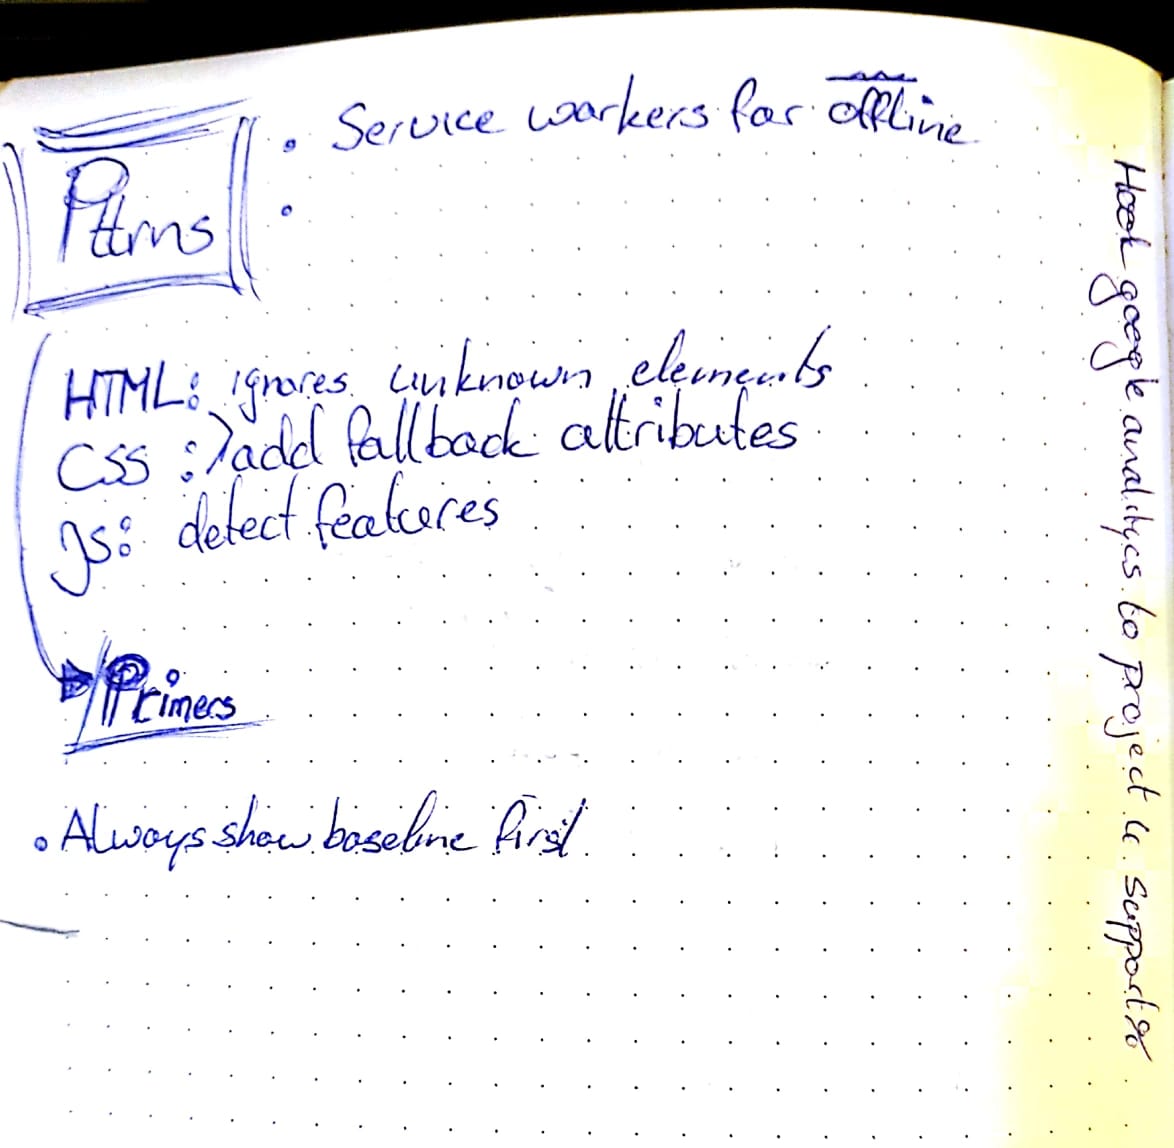 Pttrns
• Service workers for offline
•
HTML: ignores unknown elements
CSS : add fallback attributes
JS: detect features
Primers
• Always show baseline first
Hook google analitycs to project 4 support %